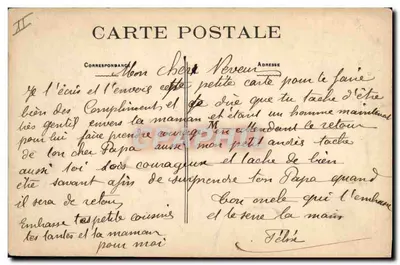 II
CARTE POSTALE
CORRESPONDANCE
ADRESSE
Mon cher Neveux
Je t'écris et t'envois cette petite carte pour te faire
bien des Compliments et te dire que tu tache d'être
très gentil envers ta maman et étant un homme maintenant
pour lui faire prendre courage en attendant le retour
de ton cher Papa aussi mon petit andrés tache
aussi toi sois courageux et tache de bien
être savant afin de surprendre ton Papa quand
il sera de retour
ton oncle qui t'embrasse
et te serre la main
Embrasse tes petite cousines
tes tantes et ta maman
pour moi
Félix